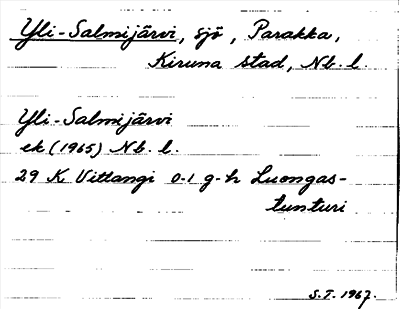 Yli-Salmijärvi, sjö, Parakka,
Kiruna stad, Nb. l.
Yli-Salmijärvi
ek (1965) Nb. l.
29 K Vittangi 0-1 g-h Luongas-
tunturi
S.T. 1967.